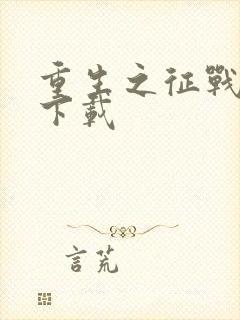 重生之征戰
下載
言荒